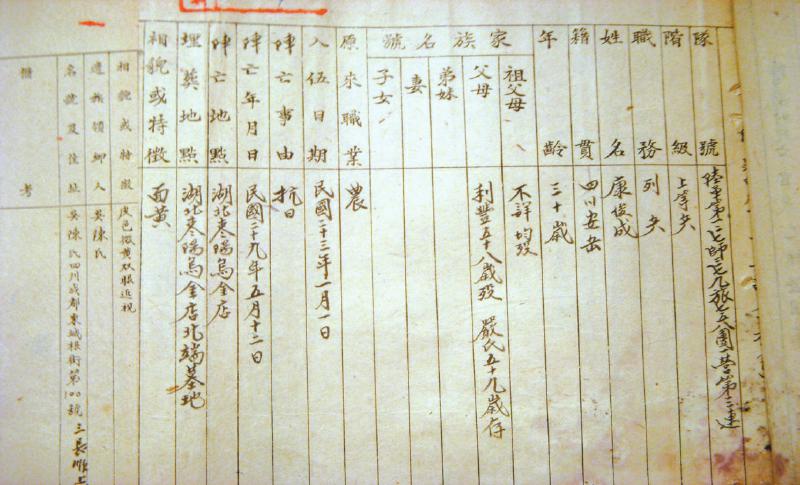 隊號 陸軍第一二七師三七九旅七五八團一營第三連
階級 上等兵
職務 列兵
姓名 康俊成
籍貫 四川安岳
年齡 三十歲
家族名號
祖父母 不詳均歿
父母 利豐五十八歲歿 嚴氏五十九歲存
弟妹
妻
子女
原來職業 農
入伍日期 民國二十三年一月一日
陣亡事由 抗日
陣亡年月日 民國二十九年五月十二日
陣亡地點 湖北棗陽烏金店
埋葬地點 湖北棗陽烏金店北端墓地
相貌或特徵 面黃
相貌或特徵 皮色微黃双眼近視
遺族領卹人 吳陳氏
名號及住址 吳陳氏四川成都東城根街第100號
備考